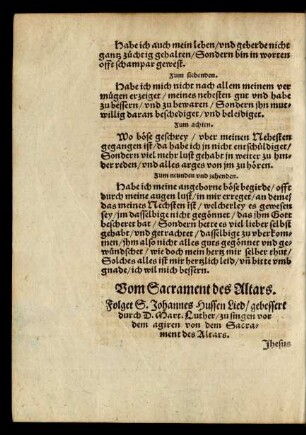 Habe ich auch mein leben/vnd geberde nicht
gantz züchtig gehalten/Sondern bin in worten
offt schampar gewest.
Zum siebenden.
Habe ich mich nicht nach allem meinem ver
mügen erzeiget/meines nehesten gut vnd habe
zu bessern/vnd zu bewaren/Sondern ihn mut
willig daran beschediget/vnd beleidiget.
Zum achten.
Wo böse geschrey/vber meinen Nehesten
gegangen ist/da habe ich jn nicht entschüldiget/
Sondern viel mehr lust gehabt jm weiter zu hin
der reden/vnd alles arges von jm zu hören.
Zum neunden vnd zehenden.
Habe ich meine angeborne böse begirde/offt
durch meine augen lust/in mir erreget/an deme/
das meines Nechsten ist/welcherley es gewesen
sey/jm dasselbige nicht gegönnet/das jhm Gott
bescheret hat/Sondern hette es viel lieber selbst
gehabt/vnd getrachtet/dasselbige zu vberkom
men/jhm also nicht alles gutes gegönnet vnd ge-
wündschet/wie doch mein hertz mir selber thut/
Solches alles ist mir hertzlich leid/vñ bitte vmb
gnade/ich wil mich bessern.
Vom Sacrament des Altars.
Folget S. Johannes Hussen Lied/gebessert
durch D. Mart. Luther/zu singen vor
dem agiren von dem Sacra-
ment des Altars.
Jhesus